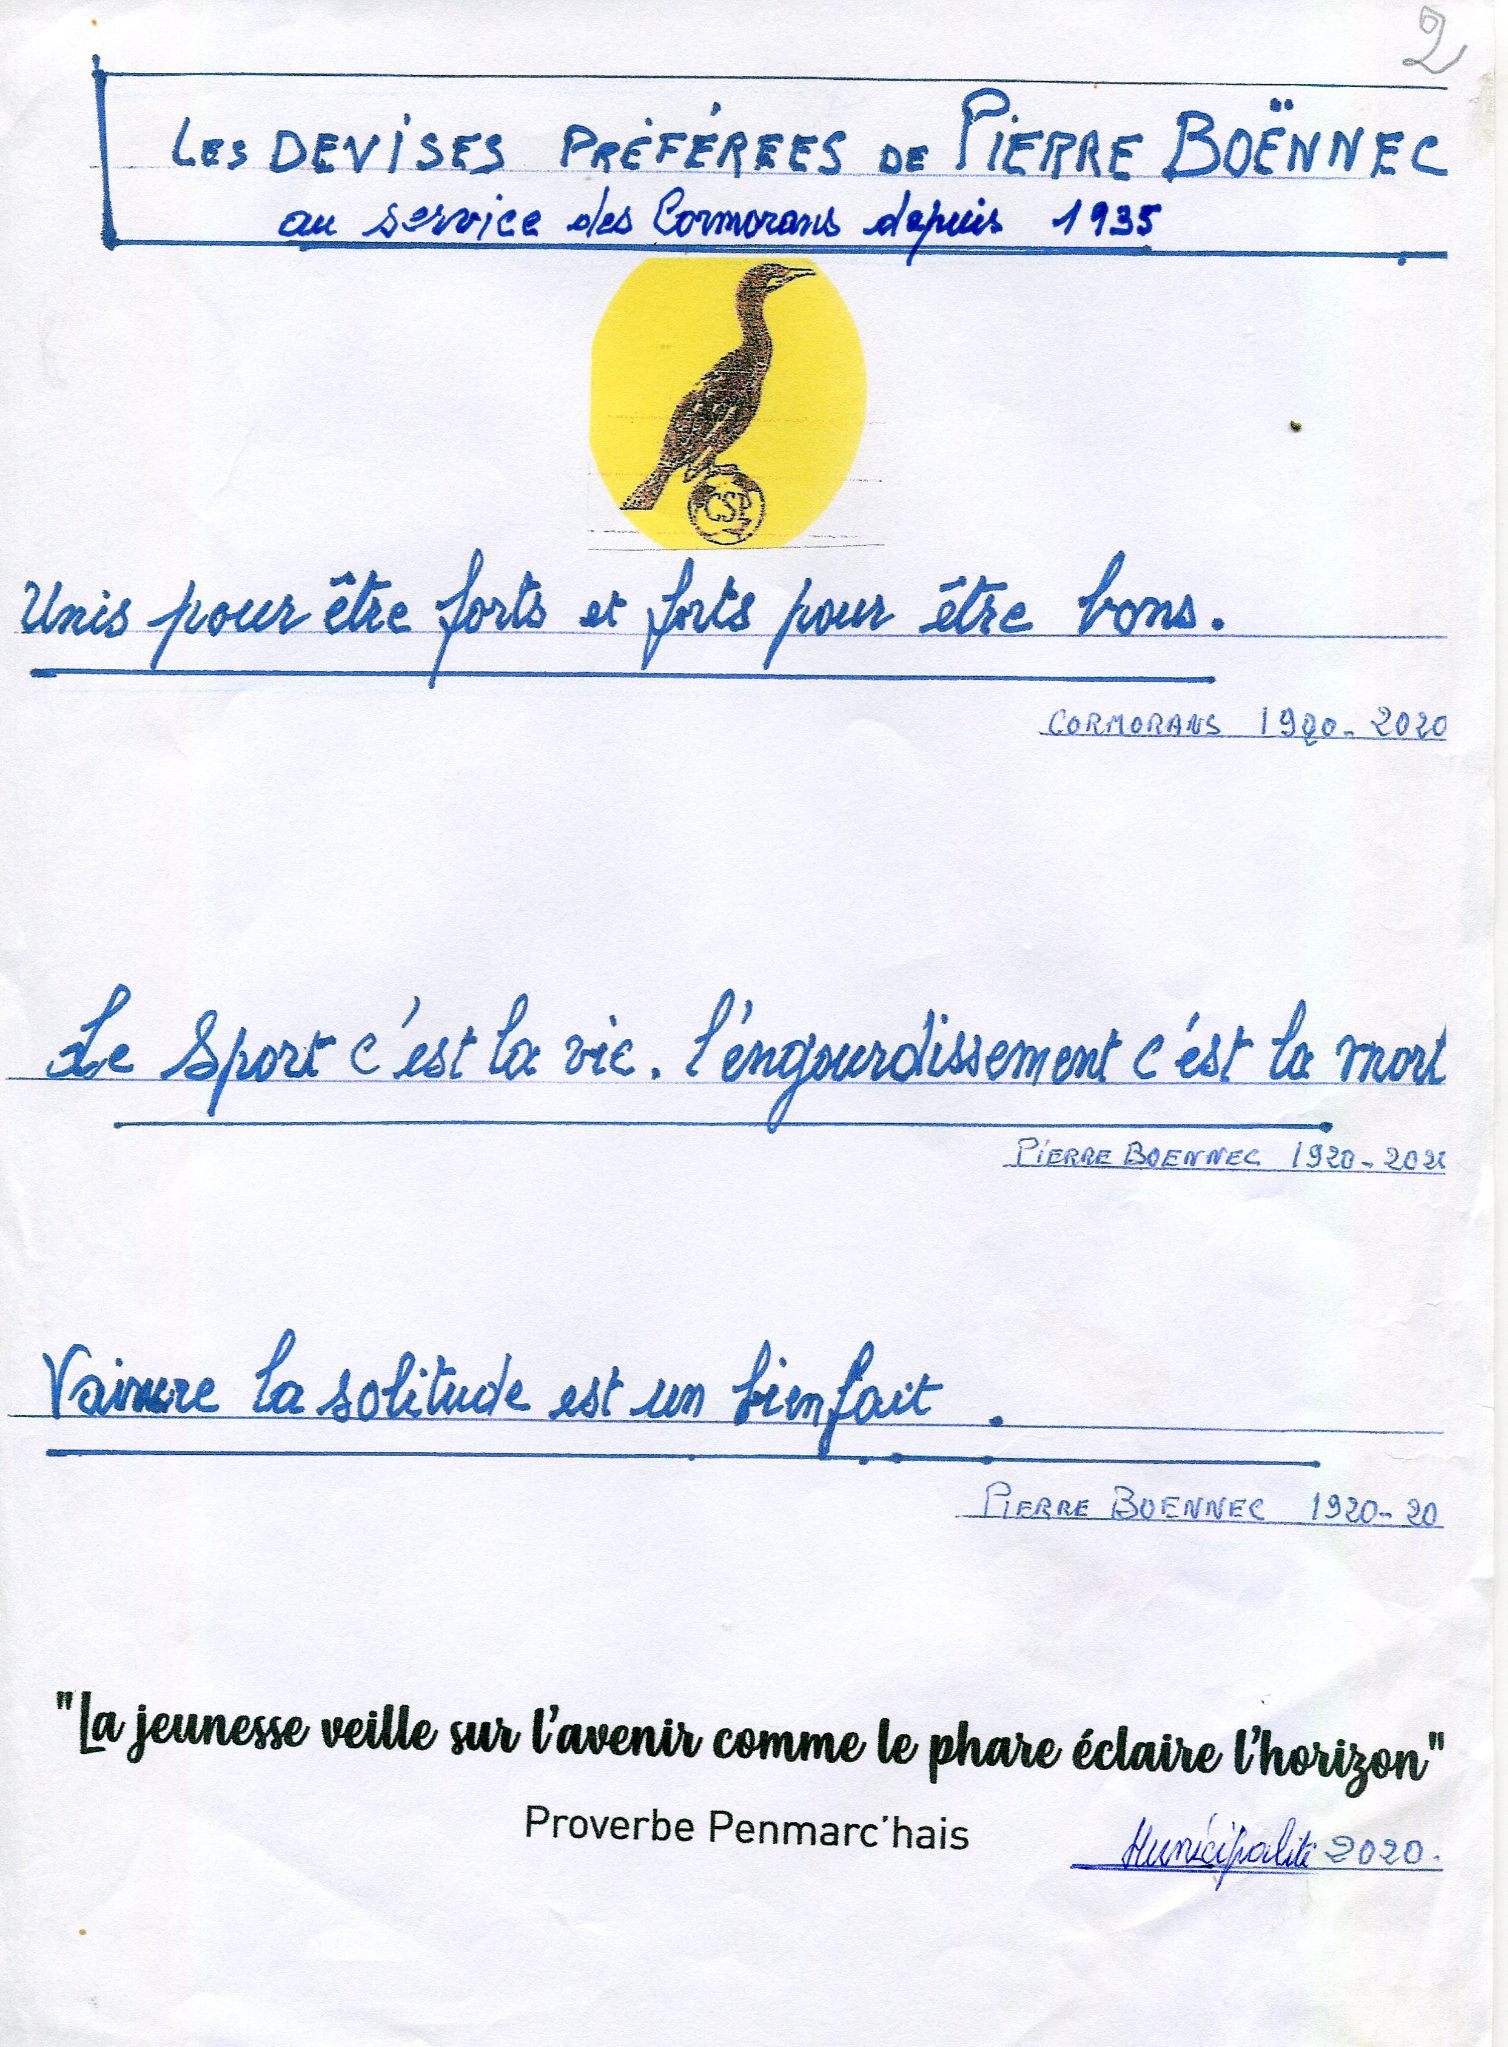 2
LES DEVISES PRÉFÉREES DE PIERRE BOËNNEC
au service des Cormorans depuis 1935
CSP
Unis pour être forts et forts pour être bons.
CORMORANS 1920-2020
Le Sport c'est la vie. l'engourdissement c'est la mort
PIERRE BOENNEC 1920-202
Vaincre la solitude est un bienfait.
PIERRE BOENNEC 1920-20
"La jeunesse veille sur l'avenir comme le phare éclaire l'horizon"
Proverbe Penmarc'hais
Municipalité 2020.